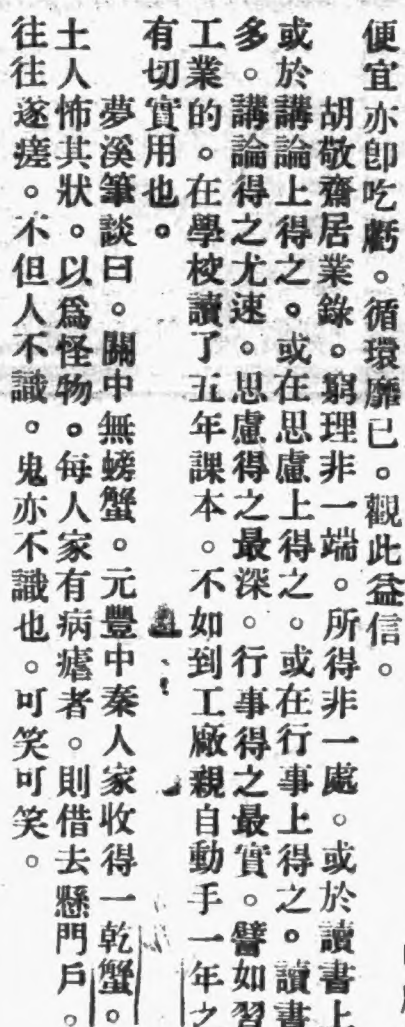 便宜亦卽吃虧。循環靡已。觀此益信。
胡敬齋居業錄。窮理非一端。所得非一處。或於讀書上
或於講論上得之。或在思慮上得之。或在行事上得之。讀書
多。講論得之尤速。思慮得之最深。行事得之最實。譬如習
工業的。在學校讀了五年課本。不如到工廠親自動手一年之
有切實用也。
夢溪筆談曰。關中無螃蟹。元豐中秦人家收得一乾蟹。
土人怖其狀。以爲怪物。每人家有病瘧者。則借去懸門戶。
往往遂瘥。不但人不識。鬼亦不識也。可笑可笑。